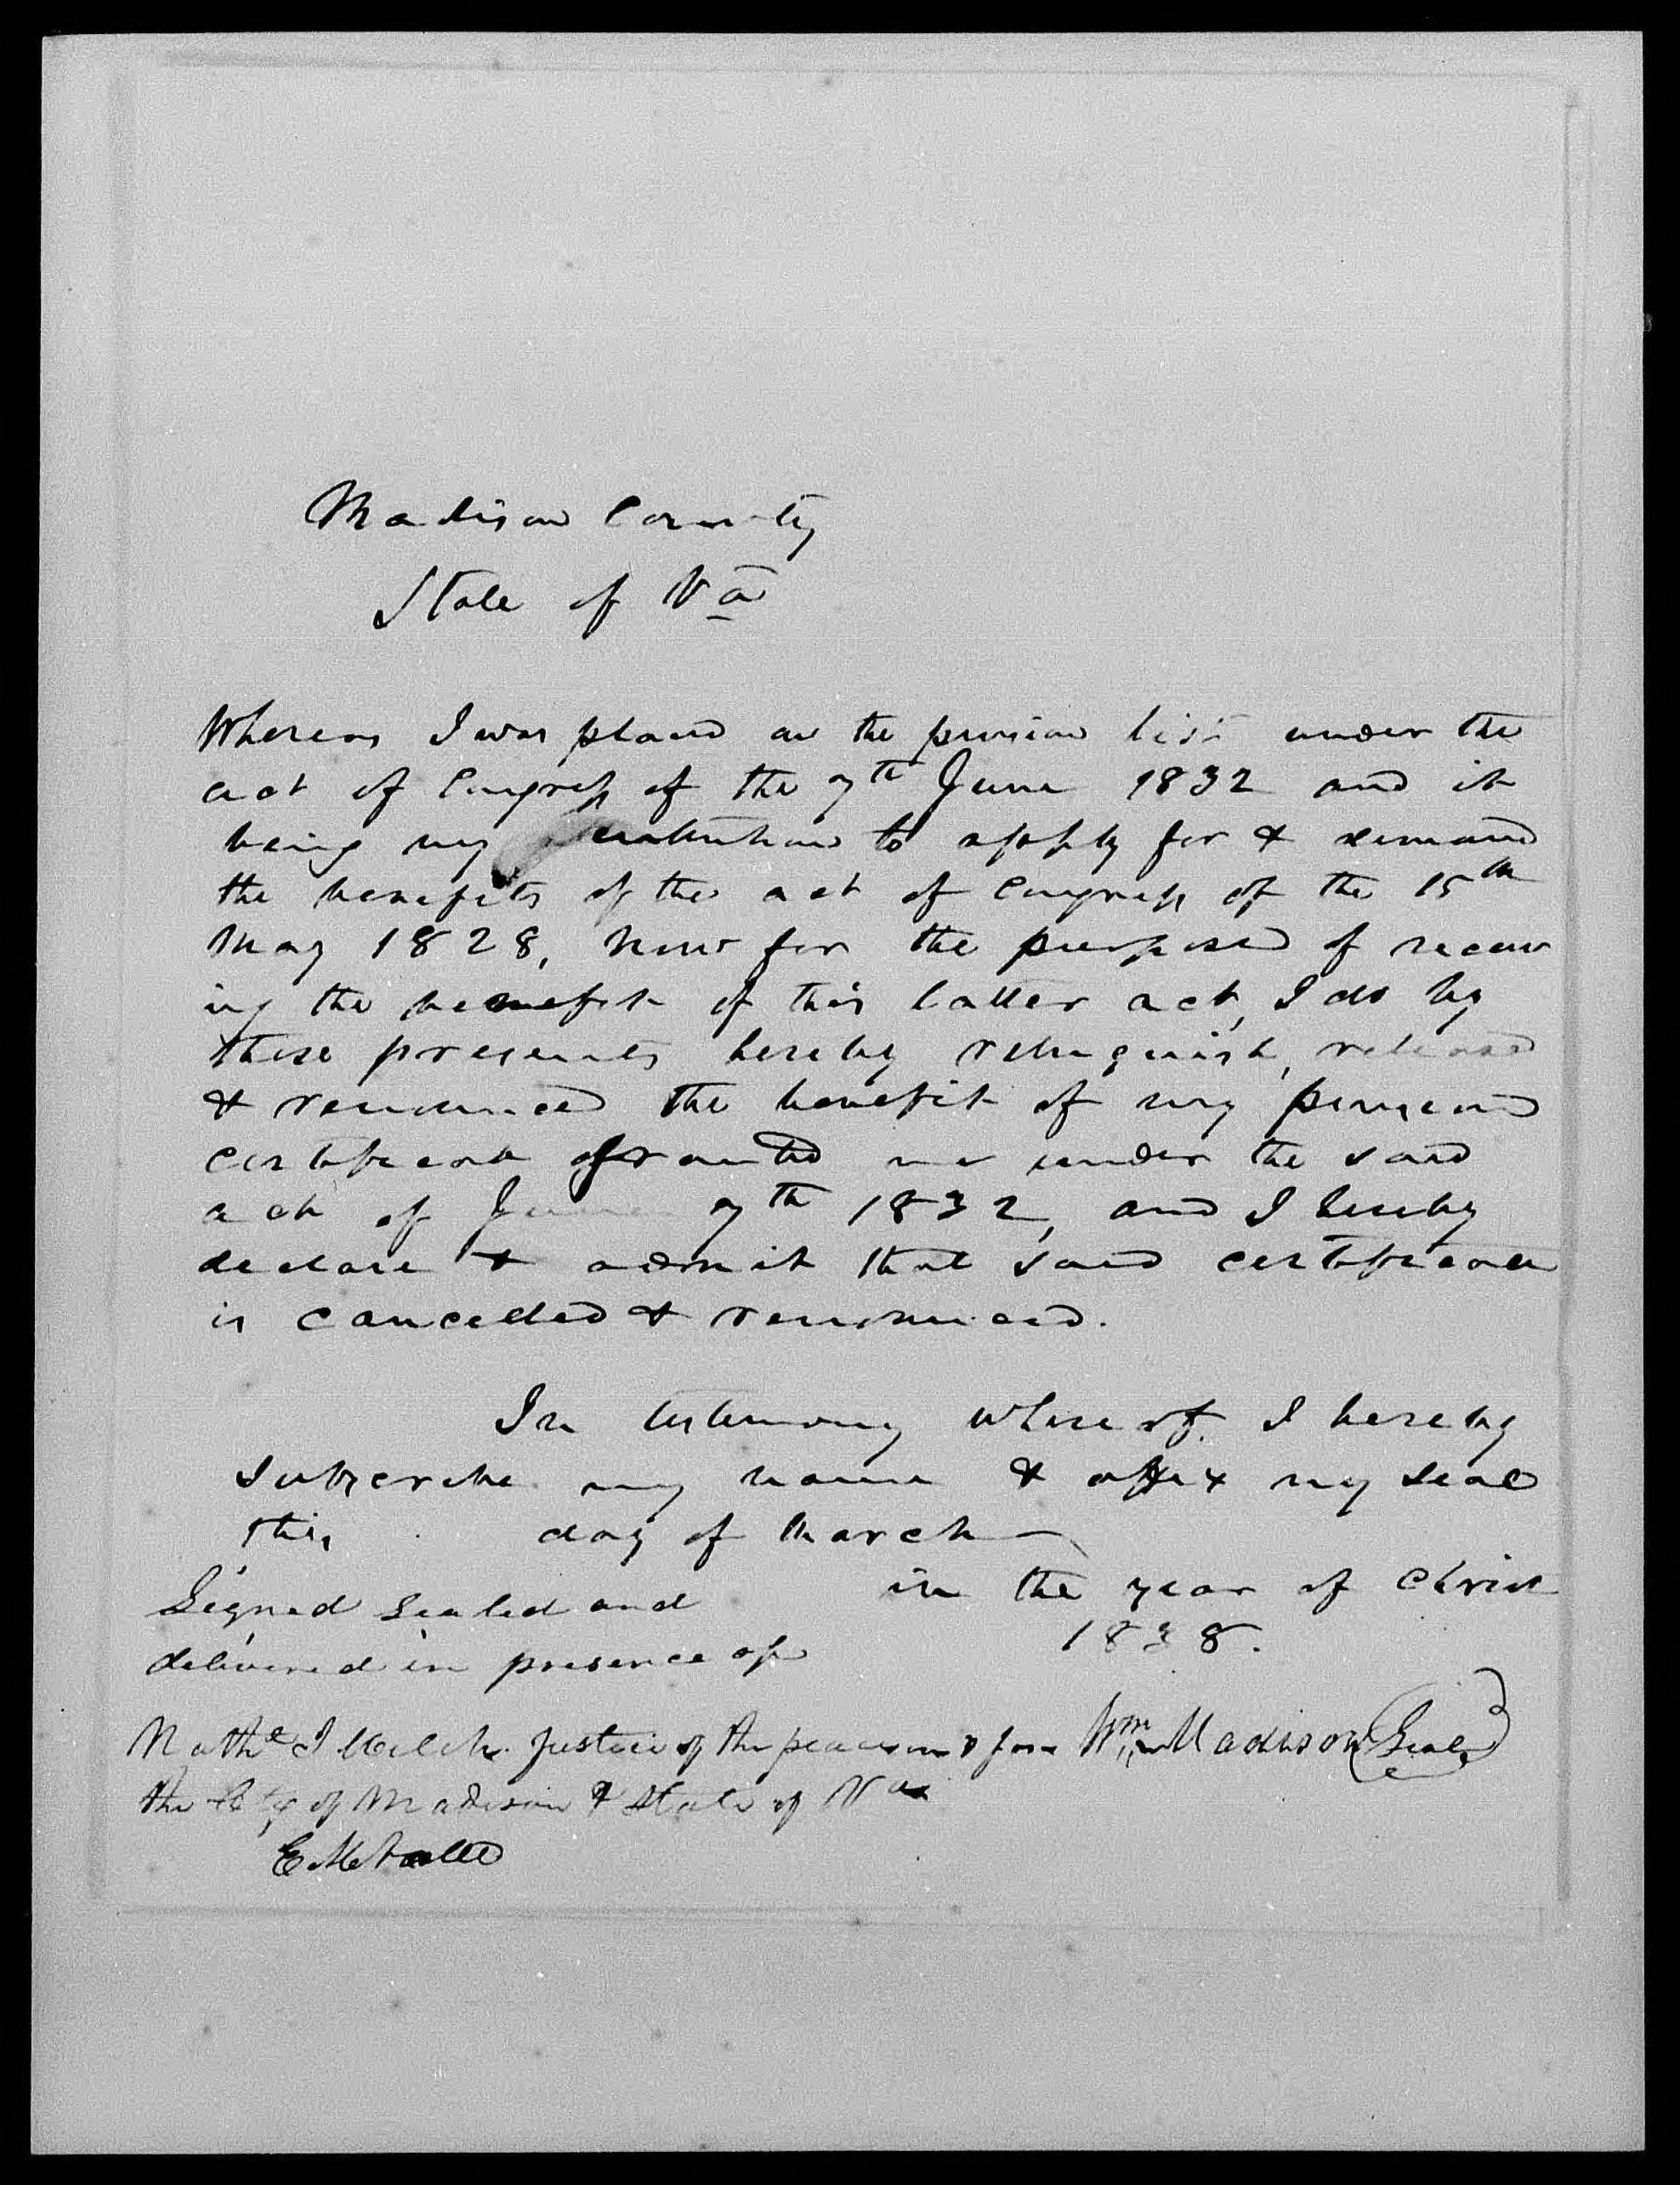 Madison County
State of Va
Whereas I was placed on the pension list under the
act of Congress of the 7th June 1832 and it
being my intention to apply for & demand
the benefits of the act of Congress of the 15th
May 1828, Now for the purpose of receiv
ing the benefit of this latter act, I do by
these presents hereby relinquish, release
& renounce the benefit of my pension
certificate granted me under the said
act of June 7th 1832, and I hereby
declare & admit that said certificate
is cancelled & renounced.
In testimony whereof I hereby
subscribe my name & affix my seal
this day of March
in the year of Christ
1838.
Signed Sealed and
delivered in presence of
Nathl J Welch Justice of the peace in & for
Wm Madison (Seal)
the Cty of Madison & State of Va